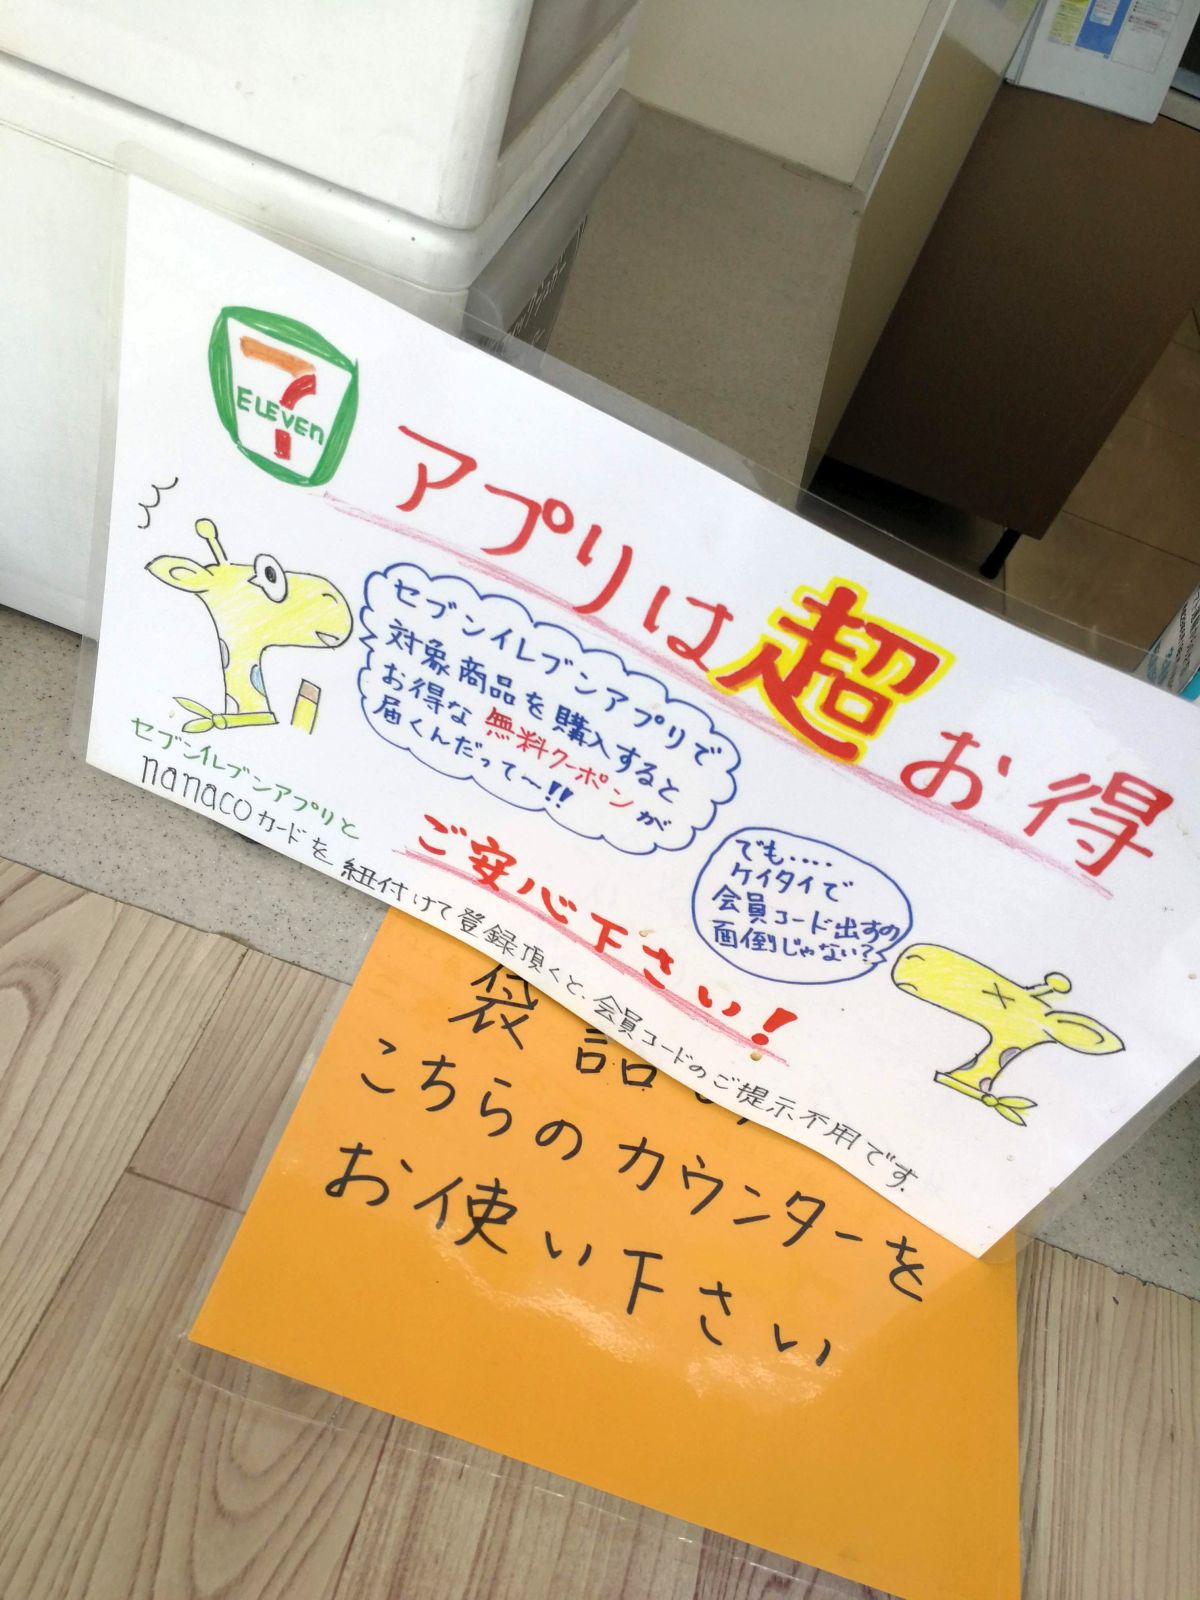 7
ELEVEn
アプリは超お得
セブンイレブンアプリで
対象商品を購入すると
お得な無料クーポンが
届くんだって〜!!
でも....
ケイタイで
会員コード出すの
面倒じゃない?
ご安心下さい!
セブンイレブンアプリと
nanacoカードを紐付けて登録頂くと、会員コードのご提示不用です.
袋詰
こちらのカウンターを
お使い下さい